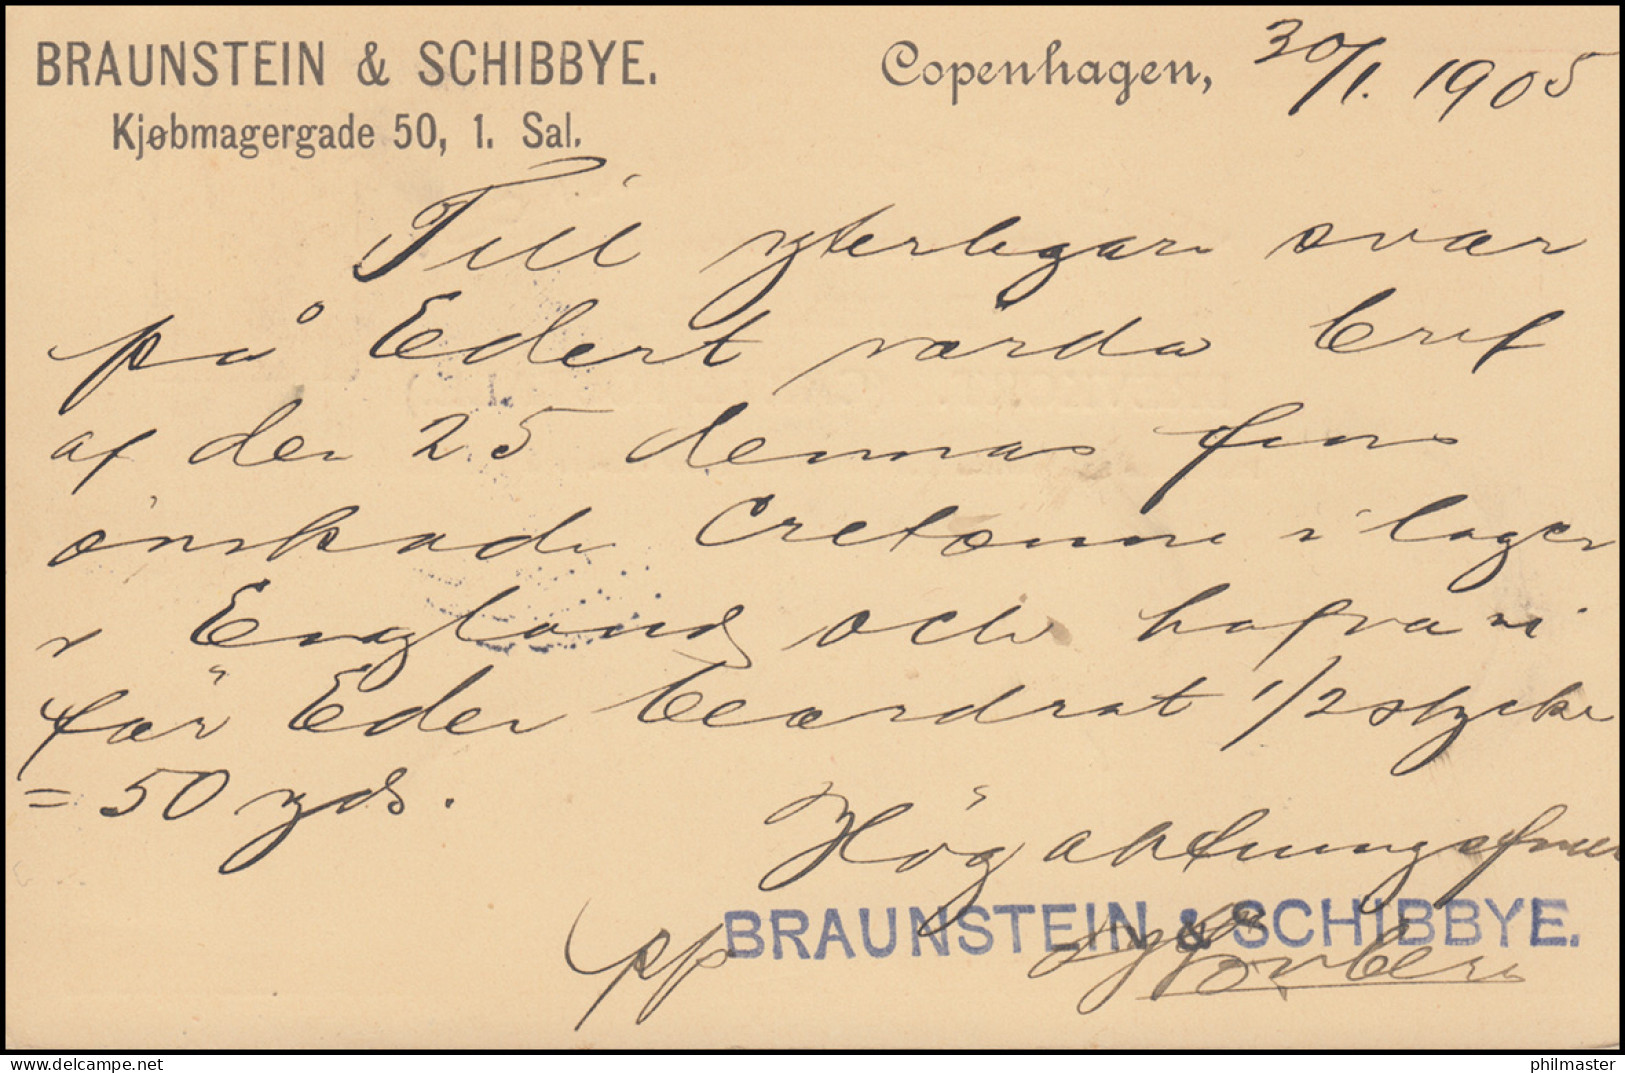 BRAUNSTEIN & SCHIBBYE.
Kjøbmagergade 50, 1. Sal.
Copenhagen, 30/1. 1905
Till yterligare svar
på Edert värda bref
af den 25 dennas fins
önskade Cretonne i lager
i England och hafva vi
för Eder beordrat 1/2 stycke
= 50 yds.
Högaktningsfullt
pp BRAUNSTEIN & SCHIBBYE.
philmaster
www.delcampe.net